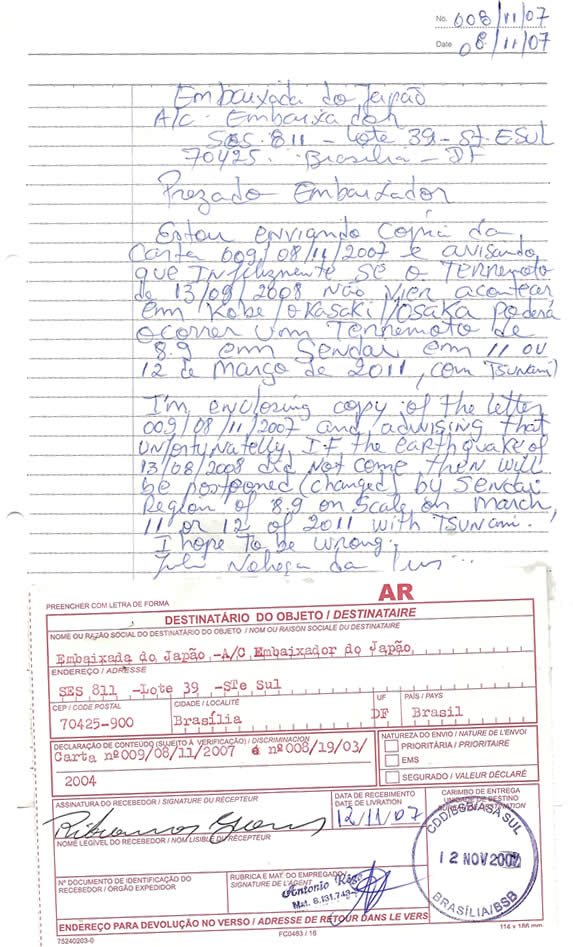 No. 008/11/07
Date 08/11/07
Embaixada do Japão
A/c - Embaixador
SES 811 - Lote 39 - St. ESul
70425. Brasília - DF
Prezado Embaixador
Estou enviando Copia da
Carta 009/08/11/2007 e avisando
que Infelizmente se o Terremoto
de 13/09/2008 não vier acontecer
em Kobe/Okasaki/Osaka poderá
ocorrer um Terremoto de
8.9 em Sendai em 11 ou
12 de março de 2011, com Tsunami
I'm enclosing copy of the letter
009/08/11/2007 and advising that
unfortynatelly, IF the earthquake of
13/08/2008 did not come then will
be postponed (changed) by Sendai
Region of 8.9 on Scale on March,
11 or 12 of 2011 with Tsunami.
I hope to be wrong.
da
AR
PREENCHER COM LETRA DE FORMA
DESTINATÁRIO DO OBJETO / DESTINATAIRE
NOME OU RAZÃO SOCIAL DO DESTINATÁRIO DO OBJETO / NOM OU RAISON SOCIALE DU DESTINATAIRE
Embaixada do Japão -A/C Embaixador do Japão
ENDEREÇO / ADRESSE
SES 811 -Lote 39 -STe Sul
CEP / CODE POSTAL CIDADE / LOCALITÉ UF PAÍS / PAYS
70425-900 Brasília DF Brasil
DECLARAÇÃO DE CONTEÚDO (SUJEITO À VERIFICAÇÃO) / DISCRIMINACION
Carta nº009/08/11/2007 é nº008/19/03/
2004
NATUREZA DO ENVIO / NATURE DE L'ENVOI
PRIORITÁRIA / PRIORITAIRE
EMS
SEGURADO / VALEUR DÉCLARÉ
ASSINATURA DO RECEBEDOR / SIGNATURE DU RÉCEPTEUR
DATA DE RECEBIMENTO
DATE DE LIVRATION
12/11/07
CARIMBO DE ENTREGA
UNIDADE DE DESTINO
ASA SUL
12 NOV 2007
BRASÍLIA/BSB
NOME LEGÍVEL DO RECEBEDOR / NOM LISIBLE DU RÉCEPTEUR
Nº DOCUMENTO DE IDENTIFICAÇÃO DO
RECEBEDOR / ÓRGÃO EXPEDIDOR
RUBRICA E MAT. DO EMPREGADO /
SIGNATURE DE L'AGENT
Antonio
Mat. 8.131.743-
ENDEREÇO PARA DEVOLUÇÃO NO VERSO / ADRESSE DE RETOUR DANS LE VERS
75240203-0 FC0463 / 16 114 x 186 mm